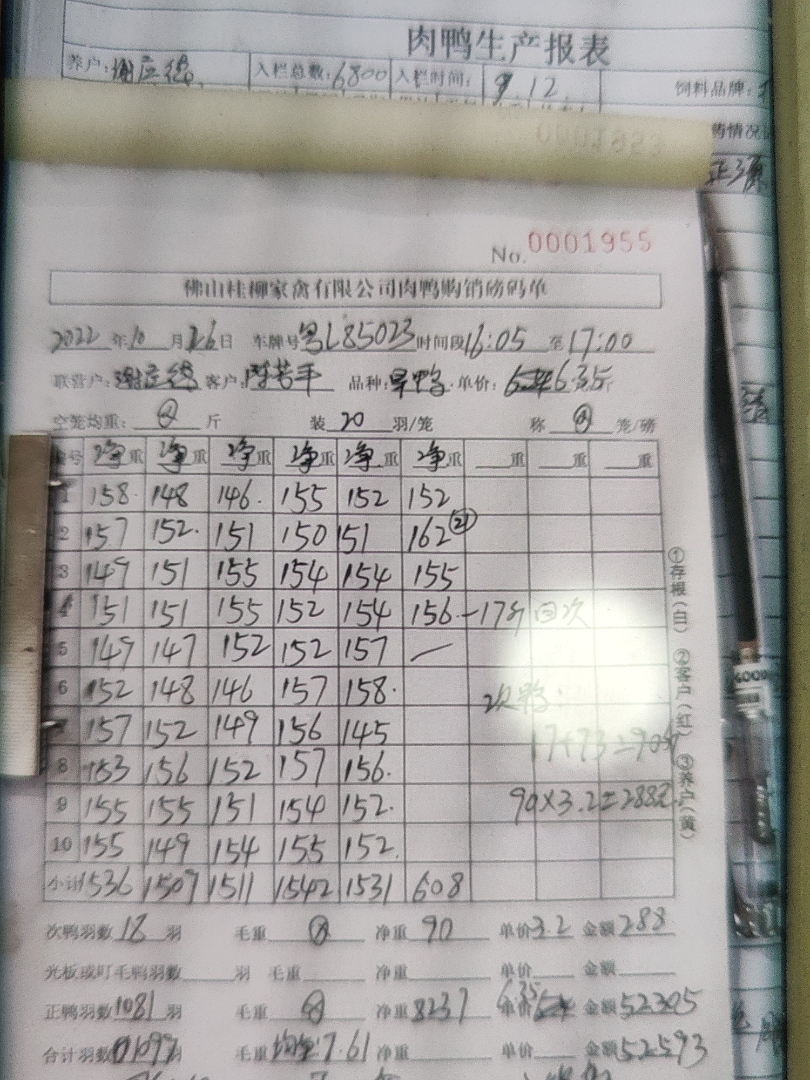 肉鸭生产报表
养户: 谢应德 入栏总数: 6800 入栏时间: 9 12 饲料品牌:
0001953
No. 0001955
佛山桂柳家禽有限公司肉鸭购销磅码单
2022 年 10 月 26 日 车牌号 粤L85023 时间段 16:05 至 17:00
联营户: 谢应德 客户: 品种: 旱鸭 单价: 6.35
空笼均重: 斤 装 20 羽/笼 称 笼/磅
号 净重 净重 净重 净重 净重 净重 重 重 重
1 158 148 146 155 152 152
2 157 152 151 150 151 162 ㉑
3 149 151 155 154 154 155
4 151 151 155 152 154 156 -17斤 回次
5 149 147 152 152 157 —
6 152 148 146 157 158
157 152 149 156 145
8 153 156 152 157 156
9 155 155 151 154 152
10 155 149 154 155 152
小计 1536 1507 1511 1542 1531 608
次鸭:
17+73=90斤
90×3.2=288元
①存根(白) ②客户(红) ③养户(黄)
次鸭羽数 18 羽 毛重 净重 90 单价 3.2 金额 288
光板或盯毛鸭羽数 羽 毛重 净重 单价 金额
正鸭羽数 1081 羽 毛重 净重 8237 单价 6.35 金额 52305
合计羽数 1099 羽 毛重 均重7.61 净重 单价 金额 52593